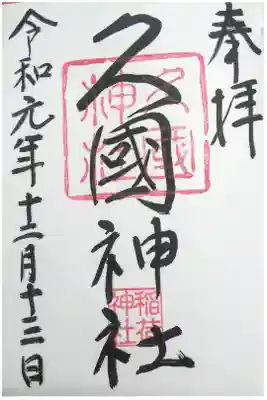 奉拝
久國神社
令和元年十二月十三日
久國神社
稲荷神社